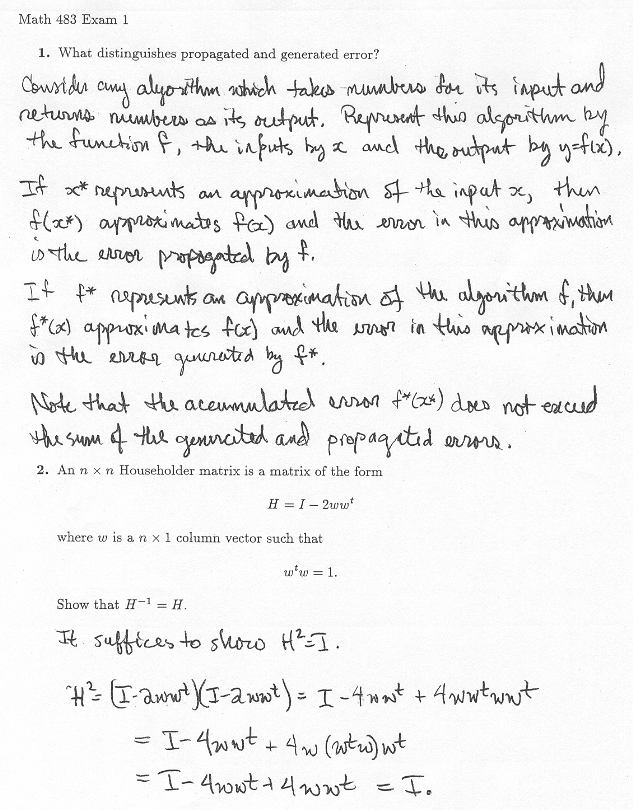 Math 483 Exam 1
1. What distinguishes propagated and generated error?
Consider any algorithm which takes numbers for its input and
returns numbers as its output. Represent this algorithm by
the function f, the inputs by x and the output by y=f(x).
If x* represents an approximation of the input x, then
f(x*) approximates f(x) and the error in this approximation
is the error propagated by f.
If f* represents an approximation of the algorithm f, then
f*(x) approximates f(x) and the error in this approximation
is the error generated by f*.
Note that the accumulated error f*(x*) does not exceed
the sum of the generated and propagated errors.
2. An n × n Householder matrix is a matrix of the form
H = I − 2wwᵗ
where w is a n × 1 column vector such that
wᵗw = 1.
Show that H⁻¹ = H.
It suffices to show H²=I.
H²= (I-2wwᵗ)(I-2wwᵗ) = I -4wwᵗ + 4wwᵗwwᵗ
= I-4wwᵗ + 4w(wᵗw)wᵗ
= I-4wwᵗ+4wwᵗ = I.